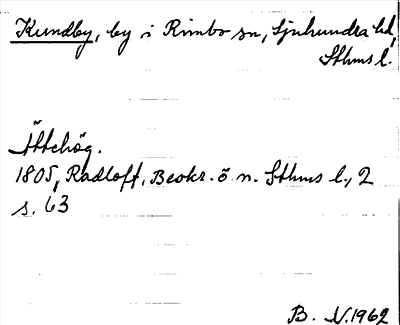 Kundby, by i Rimbo sn, Sjuhundra hd,
Sthms l.
Ättehög.
1805, Radloff, Beskr. ö. n. Sthms l., 2
s. 63
B. N. 1962